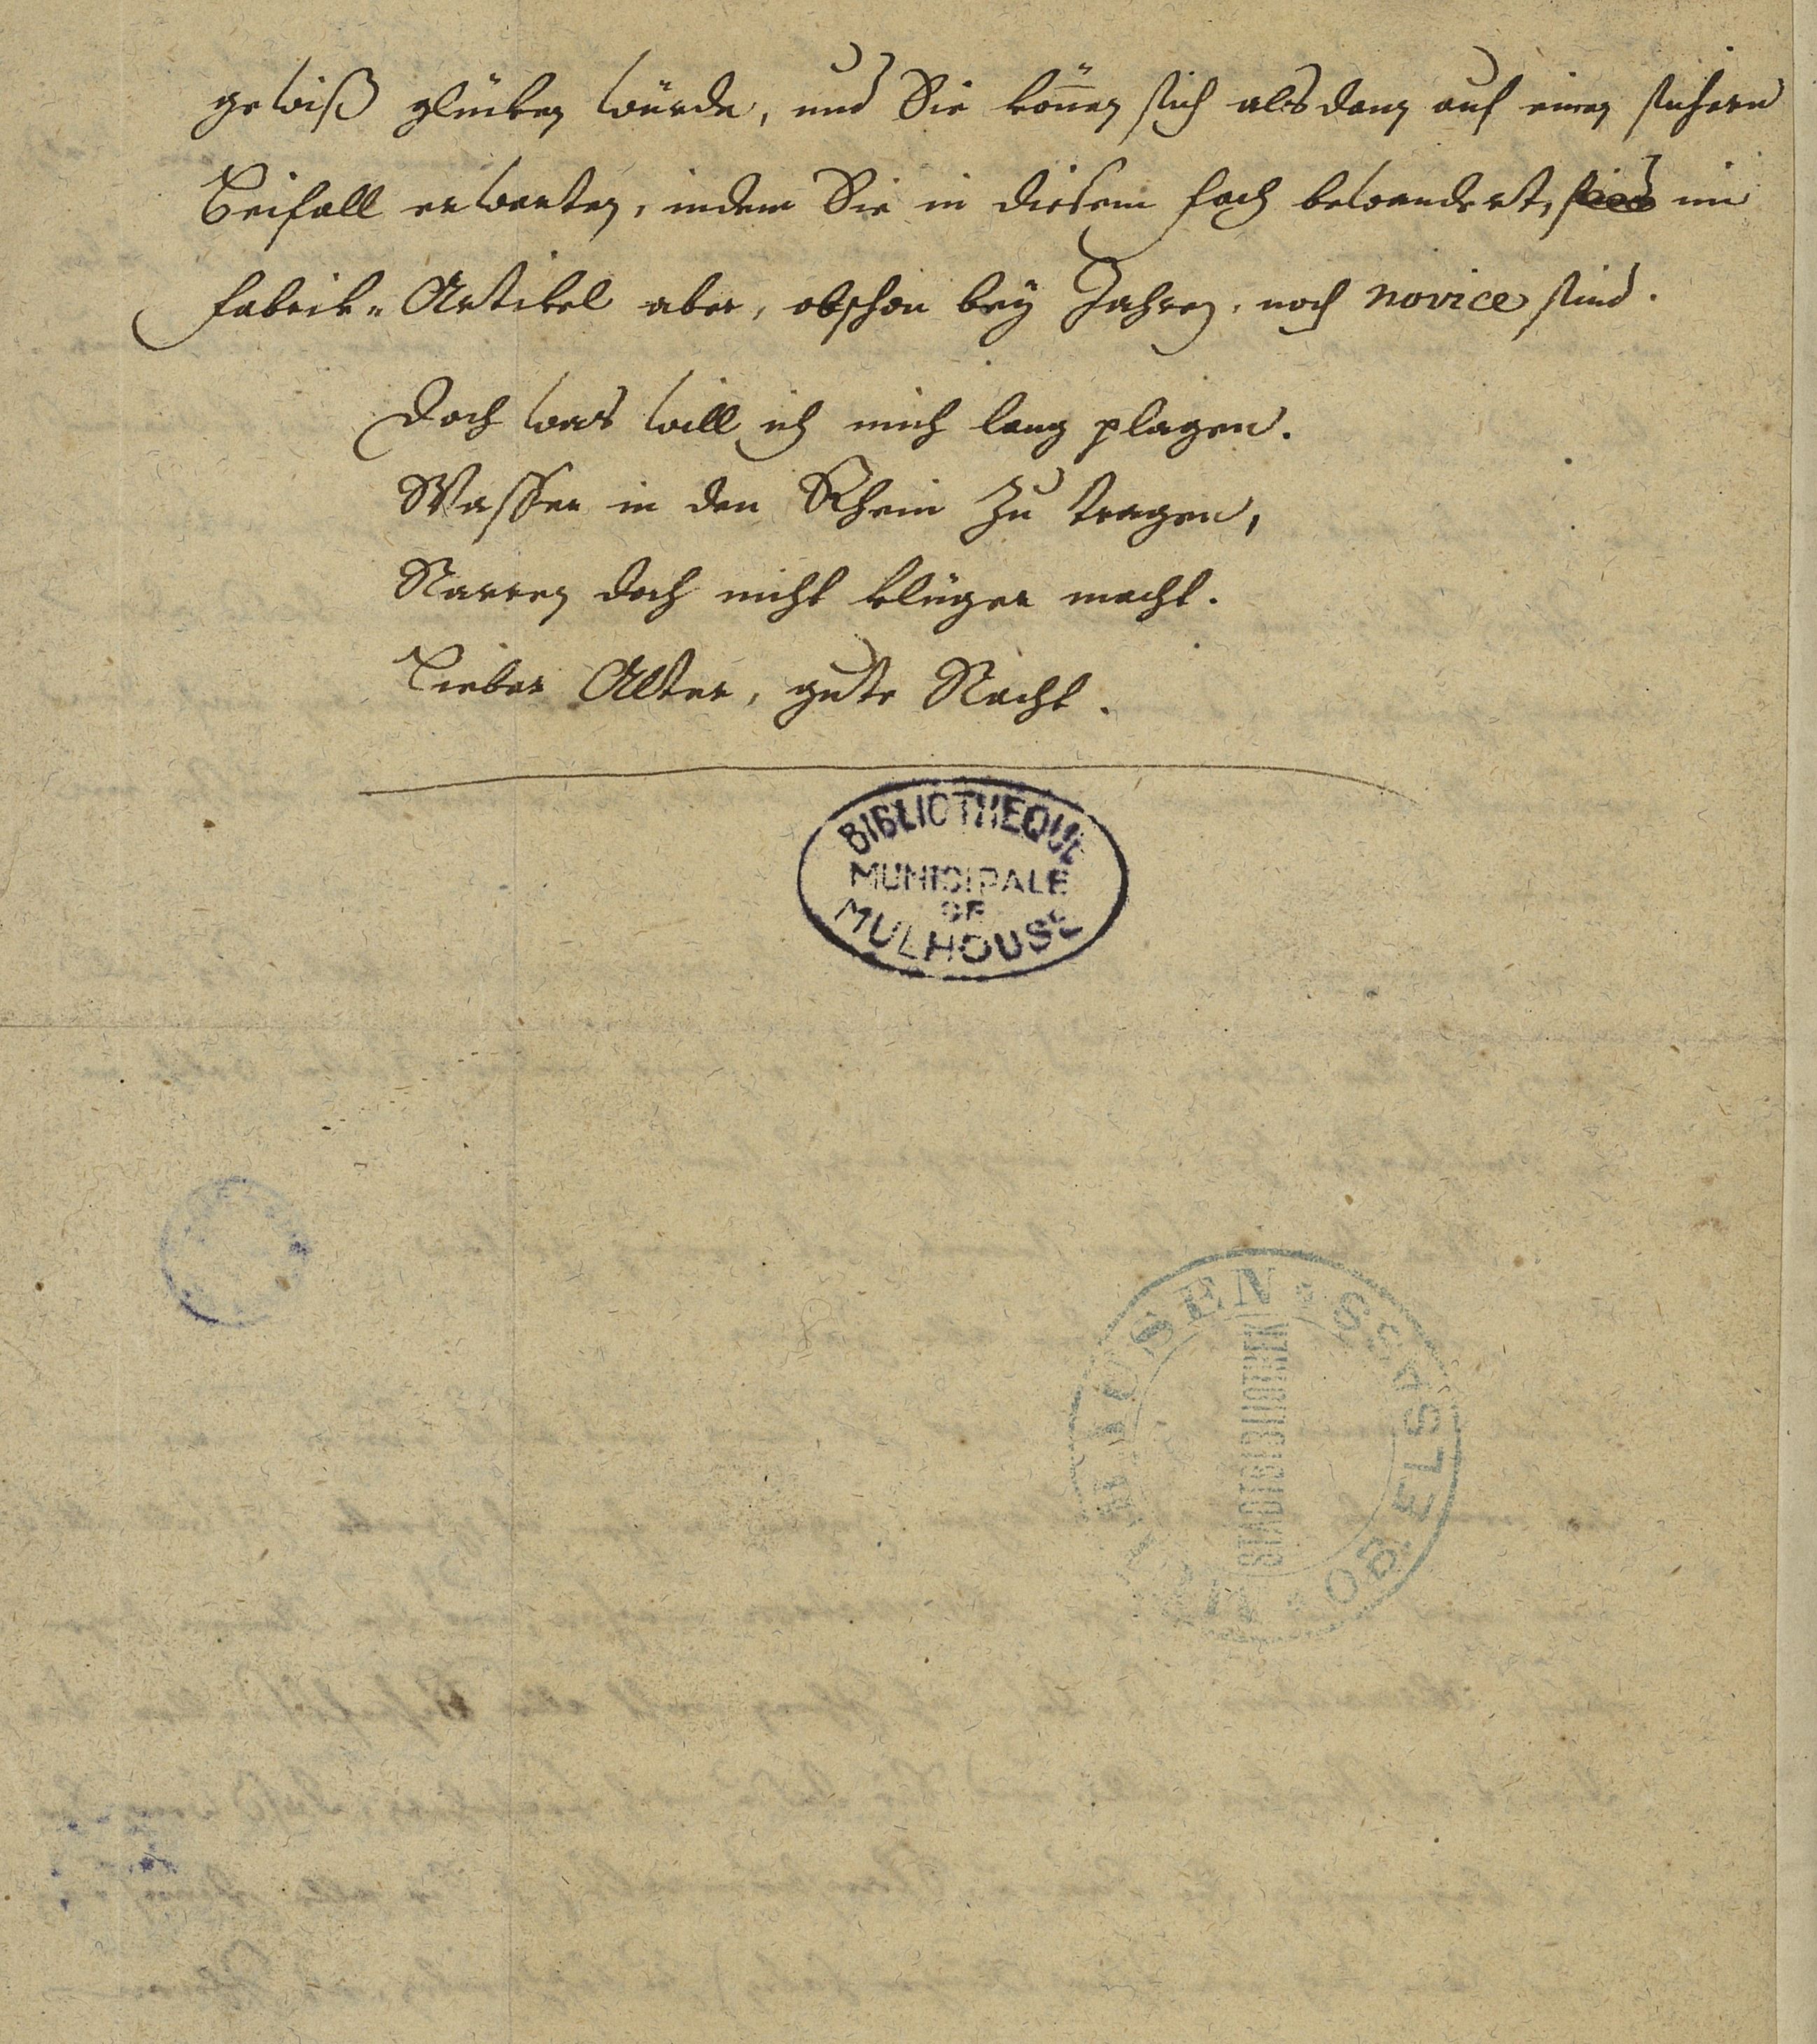 gewiß glücken würde, und Sie können sich alsdann auf einen sichern
Beifall erwarten, indem Sie in diesem Fach bewandert, sind im
Fabrik= Artikel aber, obschon bey Jahren, noch novice sind.
Doch was will ich mich lang plagen.
Wasser in den Rhein zu tragen,
Narren doch nicht klüger macht.
Lieber Alter, gute Nacht.
BIBLIOTHEQUE
MUNICIPALE
DE
MULHOUSE
STADTBIBLIOTHEK
MÜLHAUSEN * OB. ELSASS *